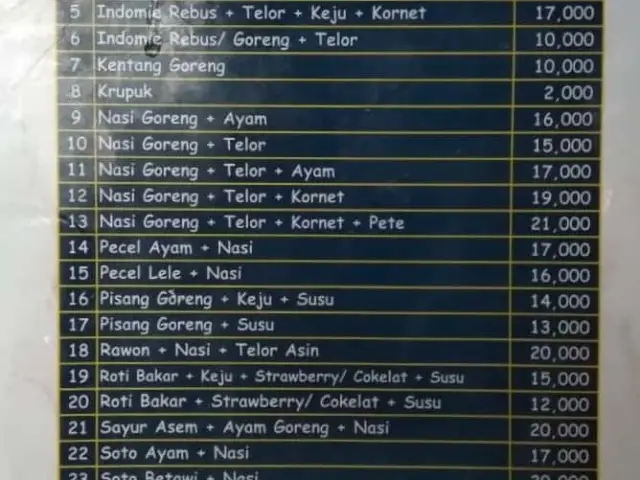 5 Indomie Rebus + Telor + Keju + Kornet 17,000
6 Indomie Rebus/ Goreng + Telor 10,000
7 Kentang Goreng 10,000
8 Krupuk 2,000
9 Nasi Goreng + Ayam 16,000
10 Nasi Goreng + Telor 15,000
11 Nasi Goreng + Telor + Ayam 17,000
12 Nasi Goreng + Telor + Kornet 19,000
13 Nasi Goreng + Telor + Kornet + Pete 21,000
14 Pecel Ayam + Nasi 17,000
15 Pecel Lele + Nasi 16,000
16 Pisang Goreng + Keju + Susu 14,000
17 Pisang Goreng + Susu 13,000
18 Rawon + Nasi + Telor Asin 20,000
19 Roti Bakar + Keju + Strawberry/ Cokelat + Susu 15,000
20 Roti Bakar + Strawberry/ Cokelat + Susu 12,000
21 Sayur Asem + Ayam Goreng + Nasi 20,000
22 Soto Ayam + Nasi 17,000
23 Soto Betawi + Nasi 20,000